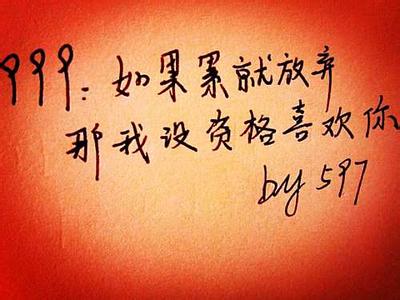 999：如果累就放弃
那我没资格喜欢你
by 597